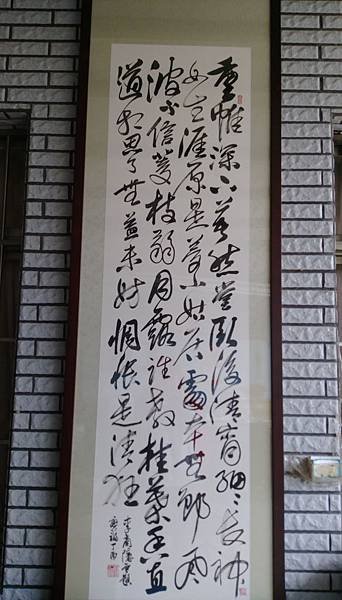 重帷深下莫愁堂臥後清宵細〻長神
女生涯原是夢小姑居處本無郎風
波不信菱枝弱月露誰教桂葉香直
道相思了無益未妨惆悵是清狂
李商隱無題